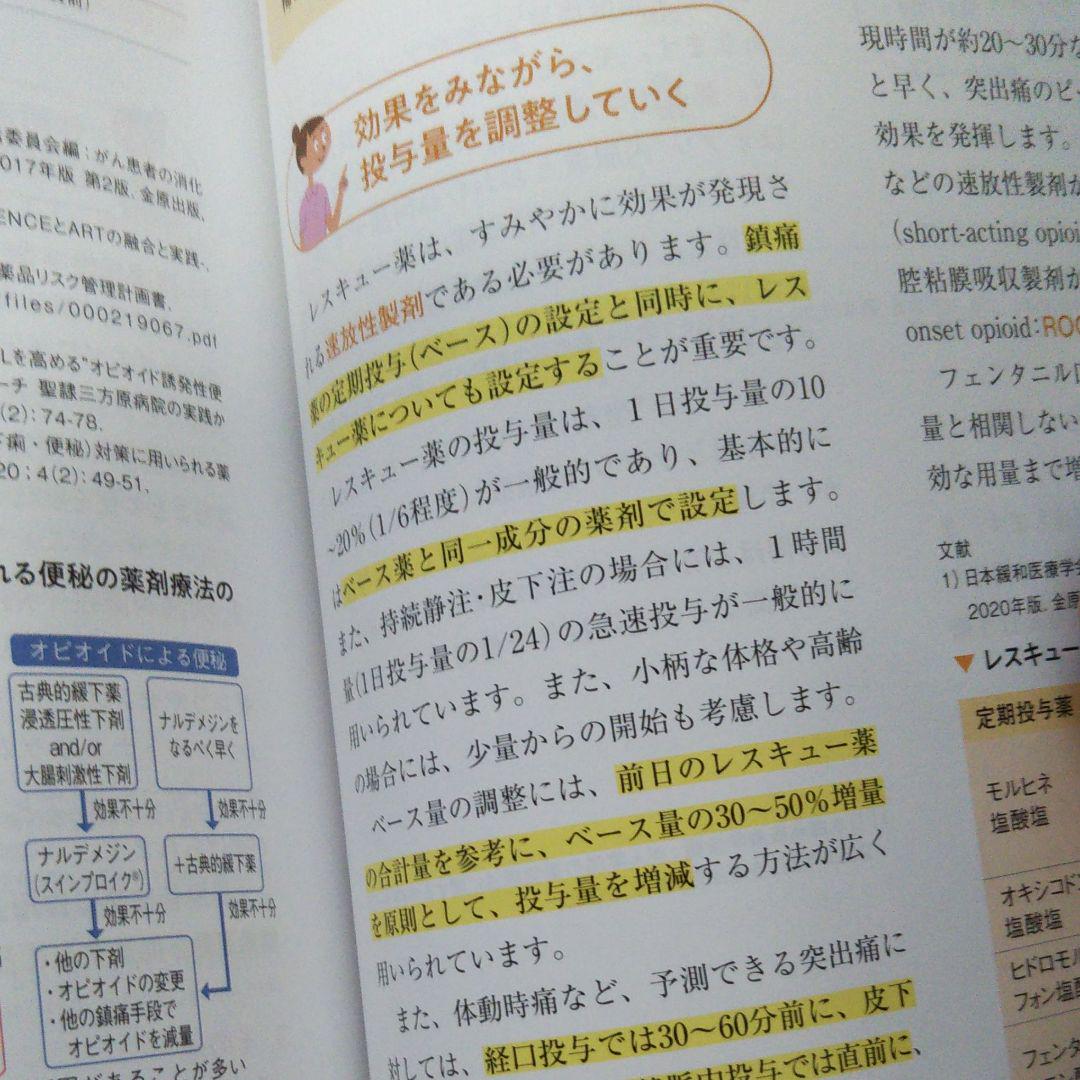 委員会編：がん患者の消化
017年版 第2版、金原出版、
ENCEとARTの融合と実践.、
薬品リスク管理計画書.
files/000219067.pdf
Lを高める"オピオイド誘発性便
ーチ 聖隷三方原病院の実践か
(2)：74-78.
下痢・便秘）対策に用いられる薬
20；4(2)：49-51.
れる便秘の薬剤療法の
オピオイドによる便秘
古典的緩下薬
浸透圧性下剤
and/or
大腸刺激性下剤
ナルデメジンを
なるべく早く
効果不十分
効果不十分
ナルデメジン
(スインプロイク®)
＋古典的緩下薬
効果不十分
効果不十分
・他の下剤
・オピオイドの変更
・他の鎮痛手段で
オピオイドを減量
があることが多い
効果をみながら、
投与量を調整していく
レスキュー薬は、すみやかに効果が発現さ
れる速放性製剤である必要があります。鎮痛
薬の定期投与（ベース）の設定と同時に、レス
キュー薬についても設定することが重要です。
レスキュー薬の投与量は、1日投与量の10
~20%（1/6程度）が一般的であり、基本的に
はベース薬と同一成分の薬剤で設定します。
また、持続静注・皮下注の場合には、1時間
量（1日投与量の1/24）の急速投与が一般的に
用いられています。また、小柄な体格や高齢
の場合には、少量からの開始も考慮します。
ベース量の調整には、前日のレスキュー薬
の合計量を参考に、ベース量の30〜50%増量
を原則として、投与量を増減する方法が広く
用いられています。
また、体動時痛など、予測できる突出痛に
対しては、経口投与では30〜60分前に、皮下
脈内投与では直前に、
現時間が約20〜30分
と早く、突出痛のピー
効果を発揮します。
などの速放性製剤が
（short-acting opioi
腔粘膜吸収製剤が
onset opioid：RO
フェンタニル
量と相関しない
効な用量まで増
文献
1）日本緩和医療学会
2020年版. 金原
▼レスキュー
定期投与薬
モルヒネ
塩酸塩
オキシコド
塩酸塩
ヒドロモル
フォン塩酸
フェンタ